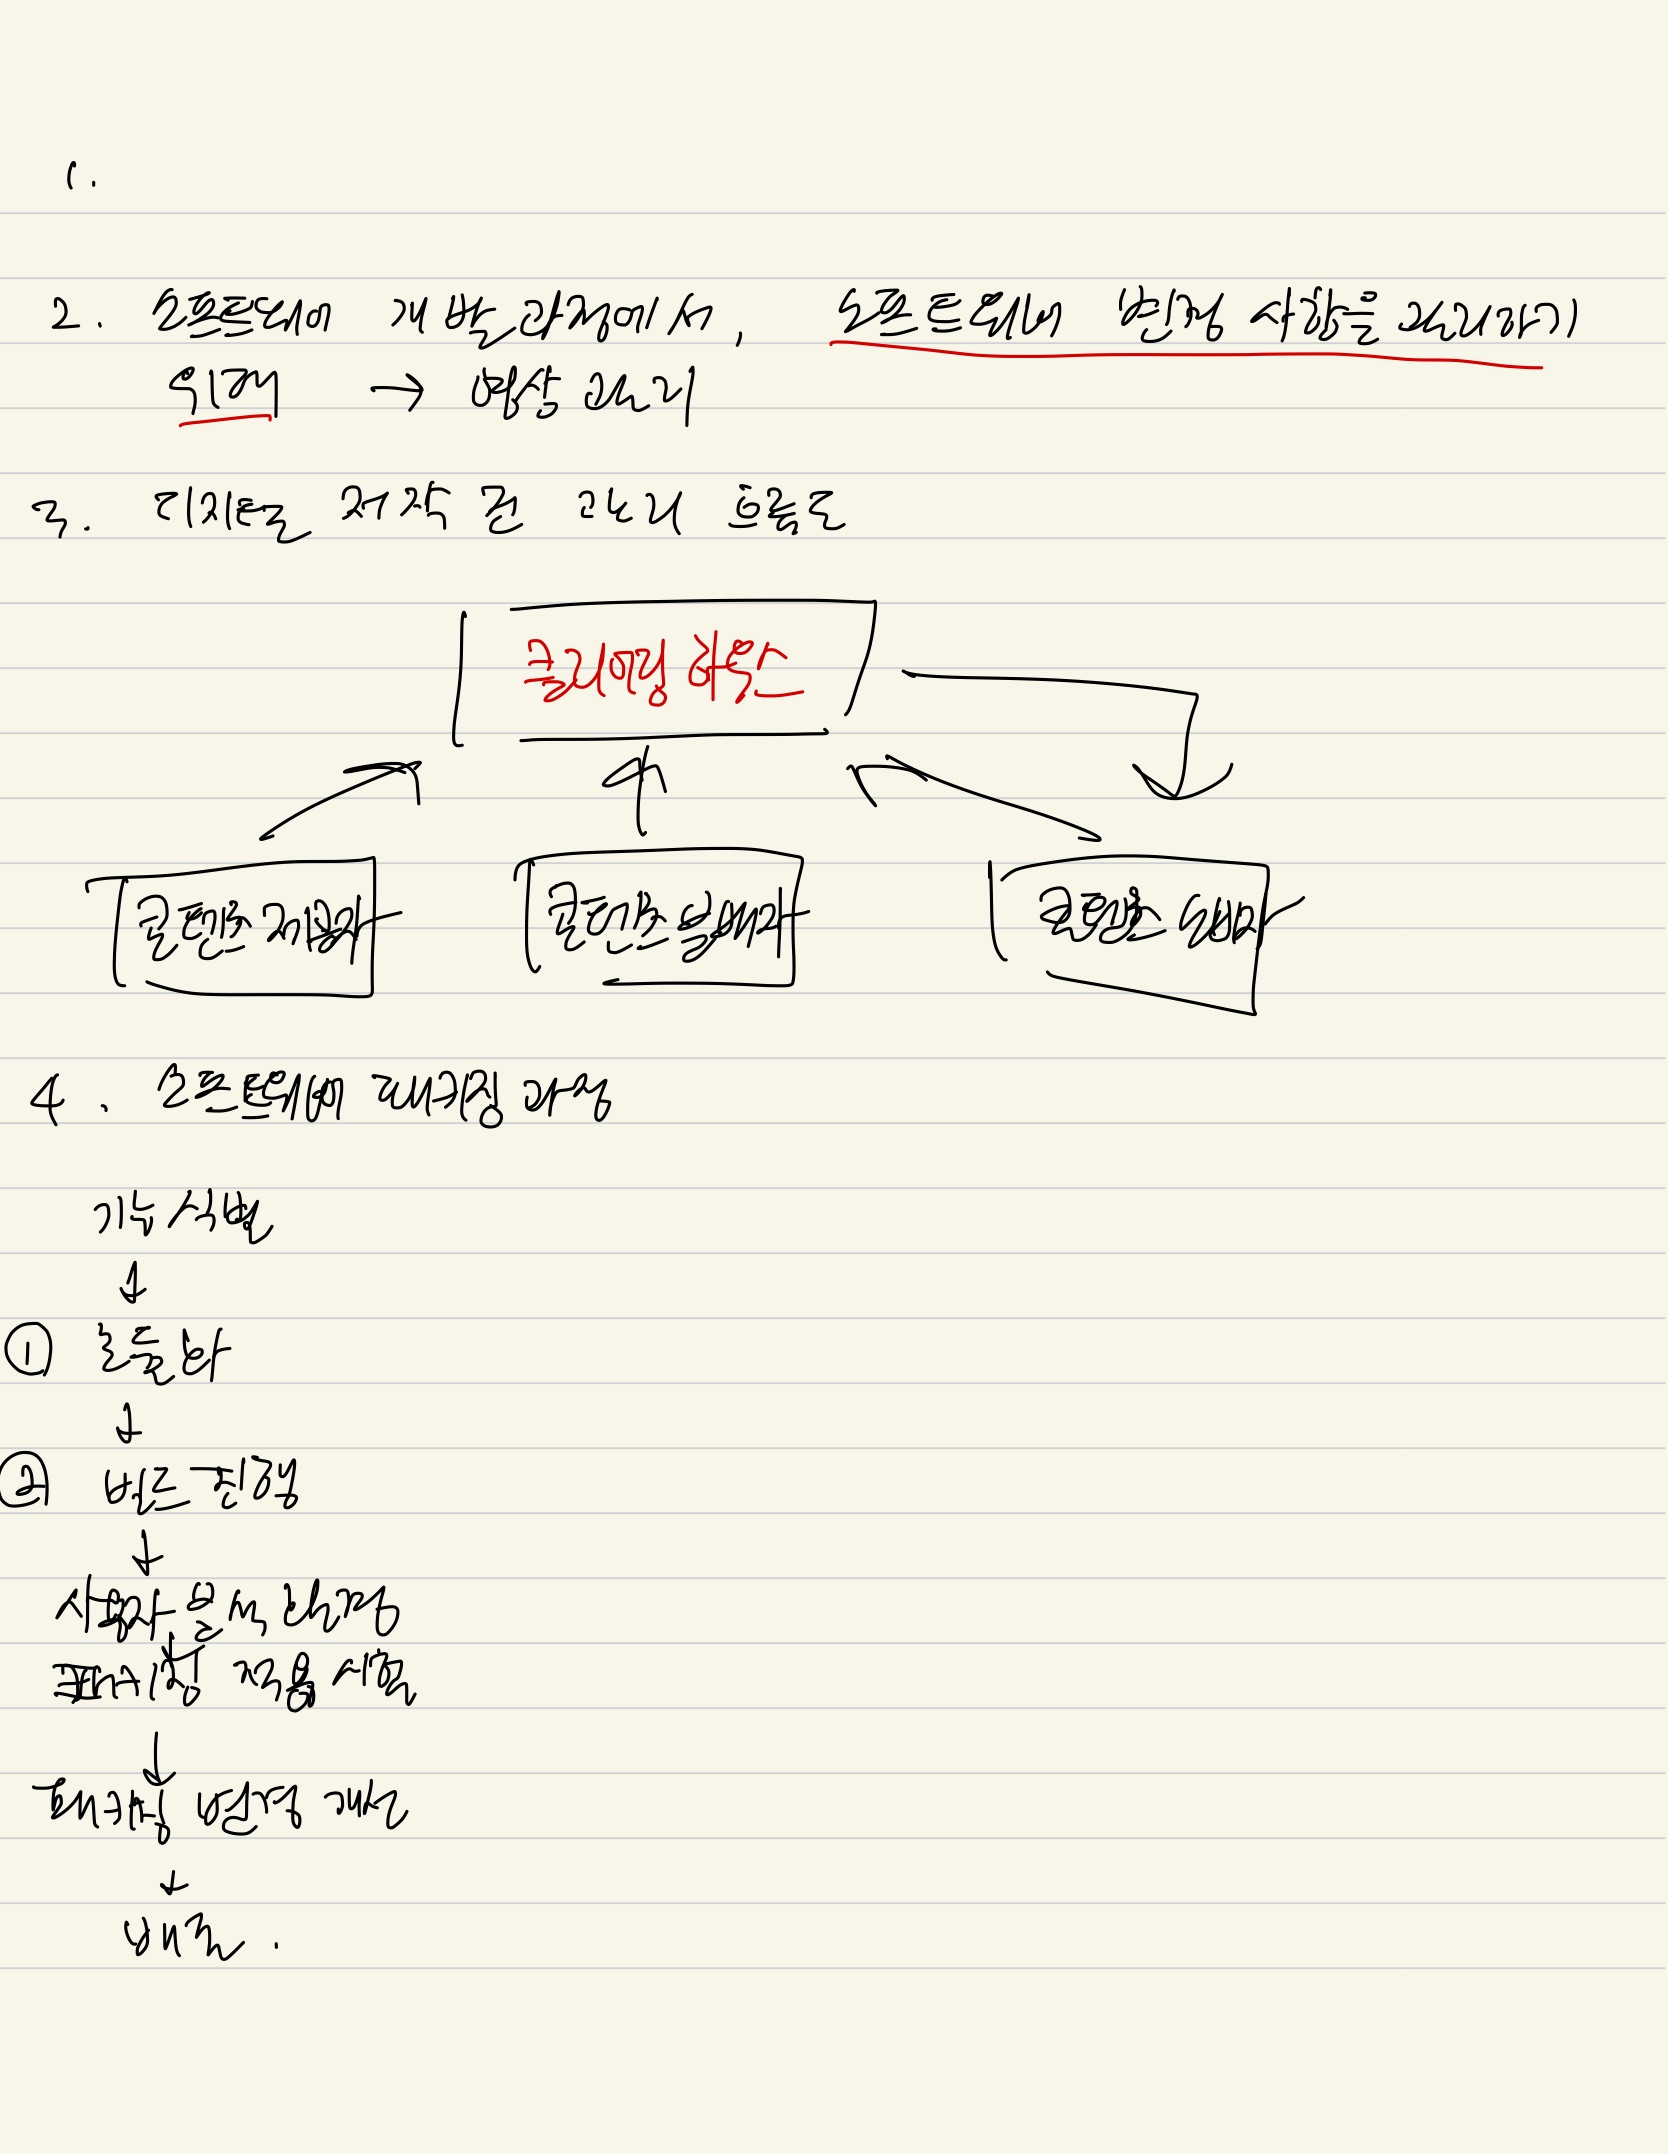 1.
2. 소프트웨어 개발과정에서, 소프트웨어 변경 사항을 관리하기
위해 → 형상 관리
3. 디지털 저작권 관리 흐름도
클리어링 하우스
콘텐츠 제공자 콘텐츠 분배자 콘텐츠 소비자
4. 소프트웨어 패키징 과정
기능 식별
↓
① 모듈화
↓
② 빌드 진행
↓
사용자 분석
패키징 적용 시험
↓
패키징 변경 개선
↓
배포.